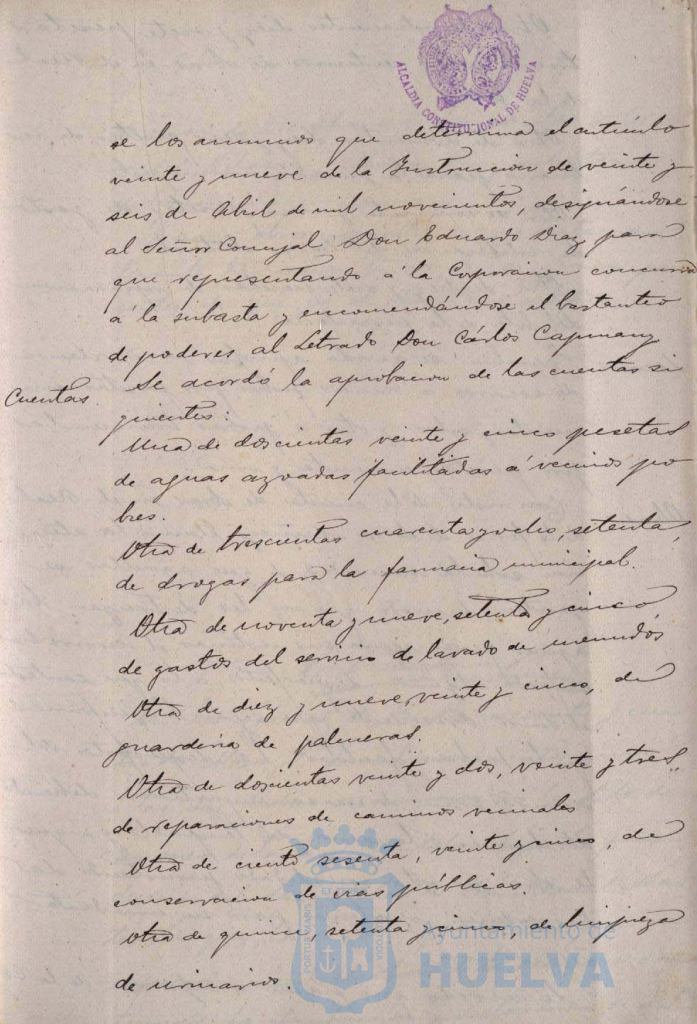 ALCALDIA CONSTITUCIONAL DE HUELVA
se los anuncios que determina el artículo
veinte y nueve de la Instruccion de veinte y
seis de Abril de mil novecientos, designándose
al Señor Concejal Don Eduardo Diaz para
que representando á la Coporacion concurra
á la subasta y encomendándose el bastanteo
de poderes al Letrado Don Cárlos Capmany
Cuentas. Se acordó la aprobacion de las cuentas si
guientes:
Una de doscientas veinte y cinco pesetas
de aguas azoadas facilitadas á vecinos po
bres.
Otra de trescientas cuarenta y ocho, setenta,
de drogas para la farmacia municipal.
Otra de noventa y nueve, setenta y cinco,
de gastos del servicio de lavado de menudos
Otra de diez y nueve, veinte y cinco, de
guarderia de palmeras.
Otra de doscientas veinte y dos, veinte y tres
de reparaciones de caminos vecinales
Otra de ciento sesenta, veinte y cinco, de
conservacion de vias públicas.
Otra de quince, setenta y cinco, de limpieza
de urinarios.
Ayuntamiento de
HUELVA